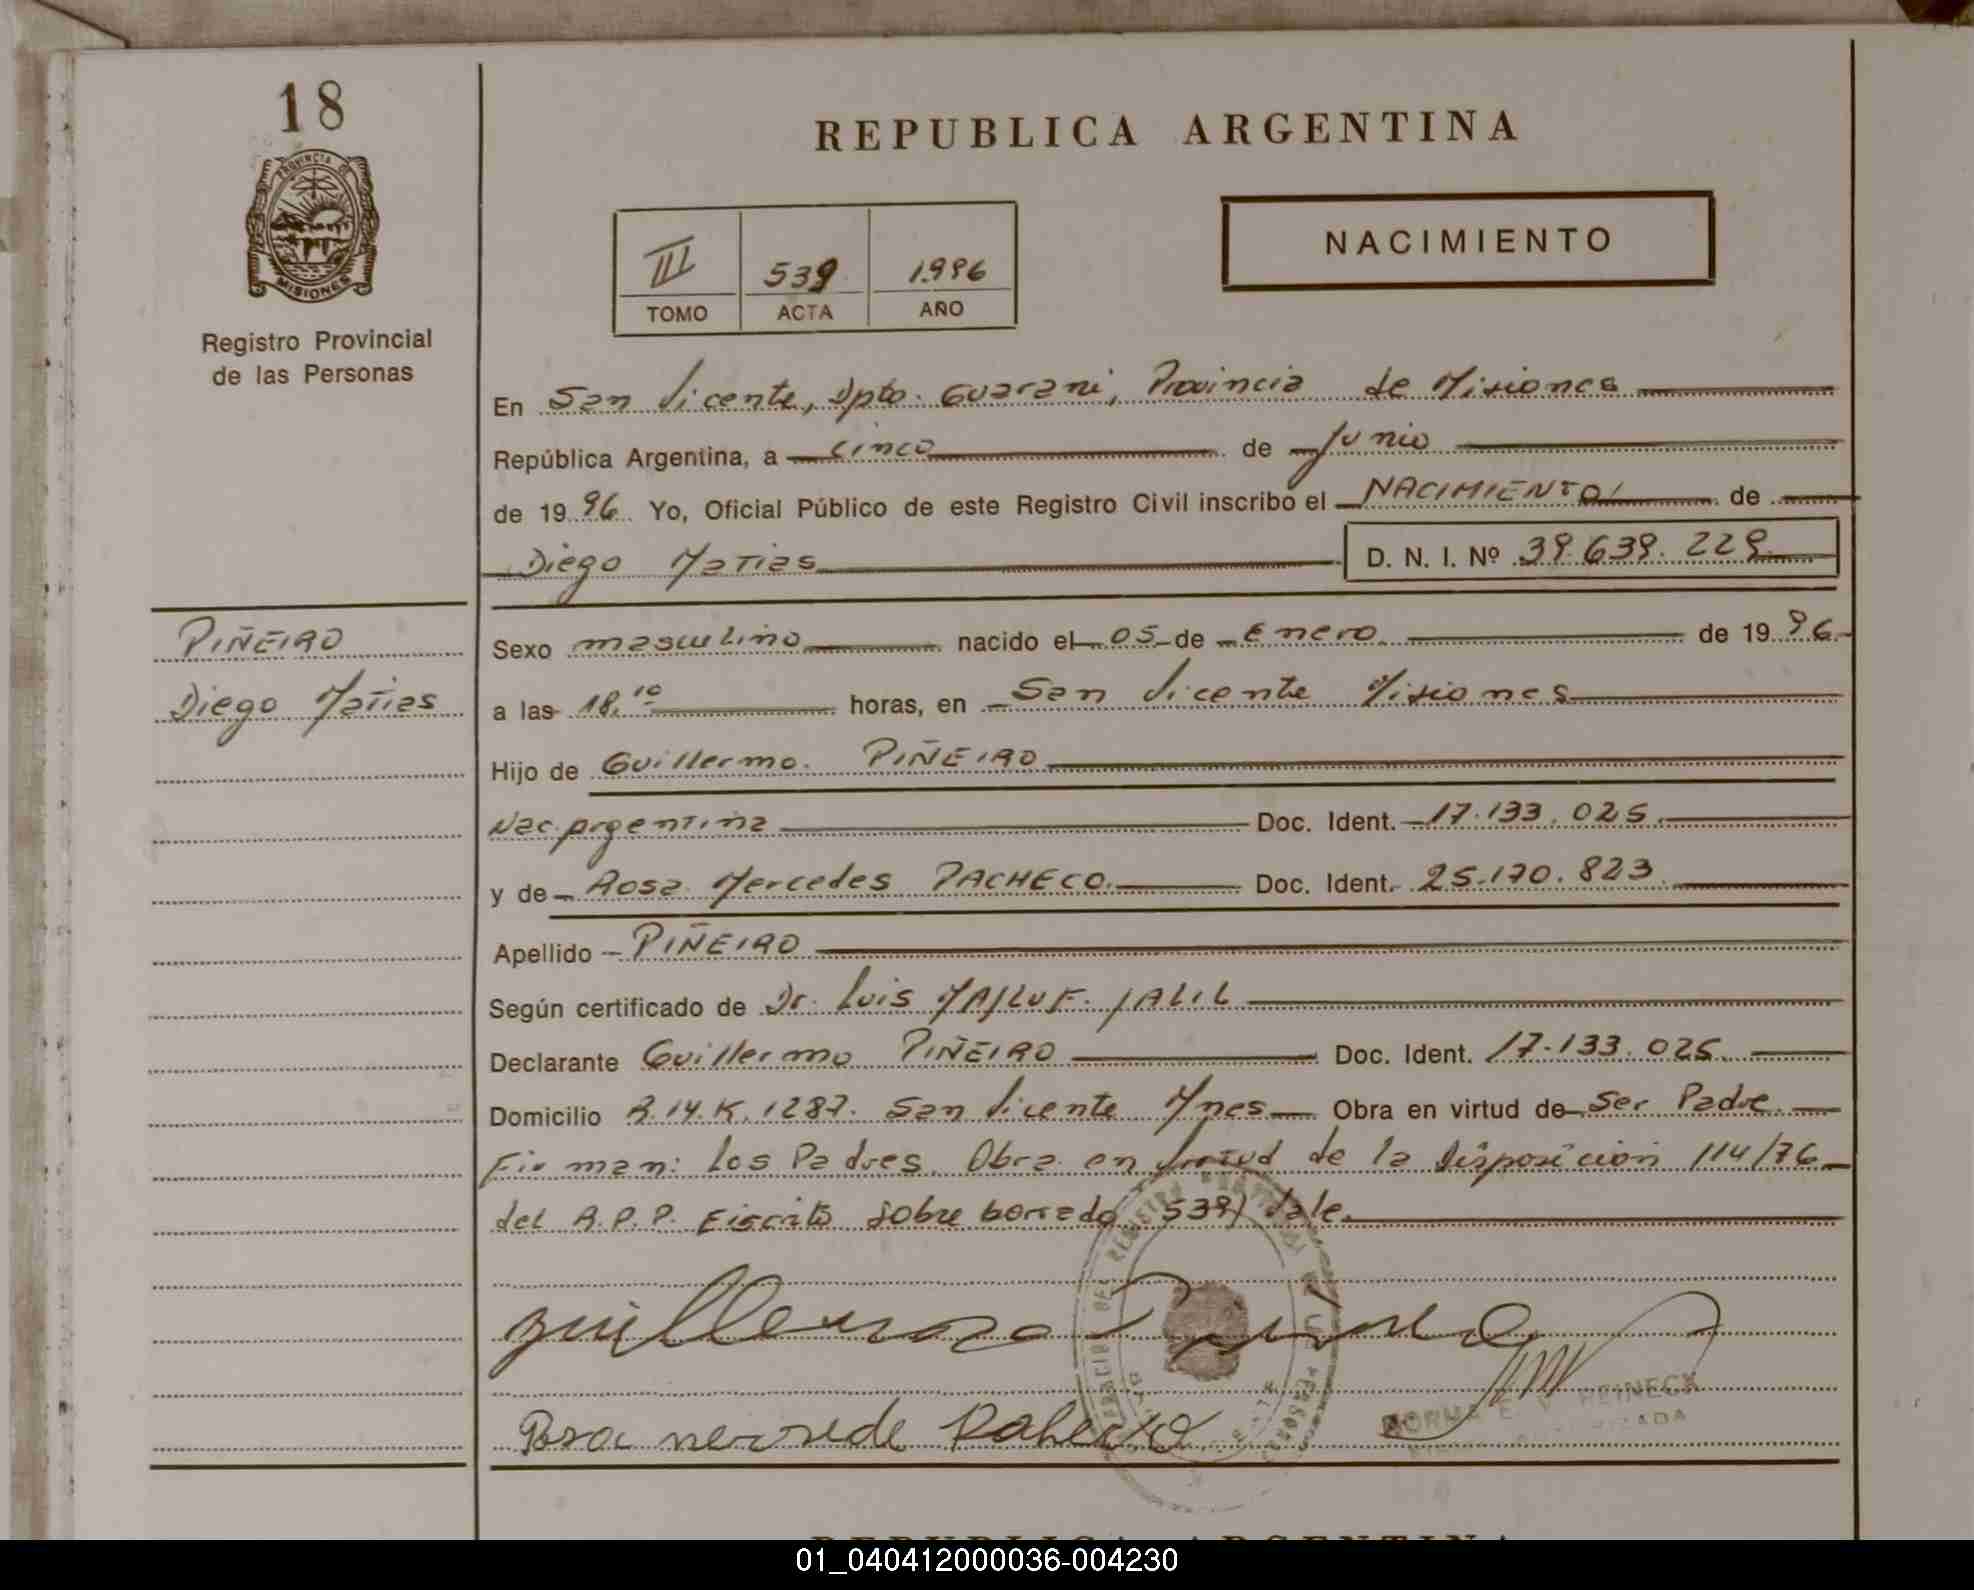 18
PROVINCIA DE
MISIONES
Registro Provincial
de las Personas
PIÑEIRO
Diego Matias
REPUBLICA ARGENTINA
NACIMIENTO
III 539 1996
TOMO ACTA AÑO
En San Vicente, Dpto. Guarani, Provincia de Misiones
República Argentina, a cinco de Junio
de 1996 Yo, Oficial Público de este Registro Civil inscribo el NACIMIENTO de
Diego Matias D. N. I. Nº 39.639.229
Sexo masculino nacido el 05 de Enero de 1996
a las 18,10 horas, en San Vicente Misiones
Hijo de Guillermo PIÑEIRO
Nac. argentina Doc. Ident. 17.133.025
y de Rosa Mercedes PACHECO Doc. Ident. 25.170.823
Apellido PIÑEIRO
Según certificado de Dr. Luis MAJLUF JALIL
Declarante Guillermo PIÑEIRO Doc. Ident. 17.133.025
Domicilio R.14.K.1287. San Vicente Mnes Obra en virtud de Ser Padre
Firman: Los Padres. Obra en virtud de la Disposicion 114/76
del R.P.P. Escrito sobre borrado 539) Vale.
guillermo
NORMA E. REINECK
REPUBLICA ARGENTINA
01_040412000036-004230